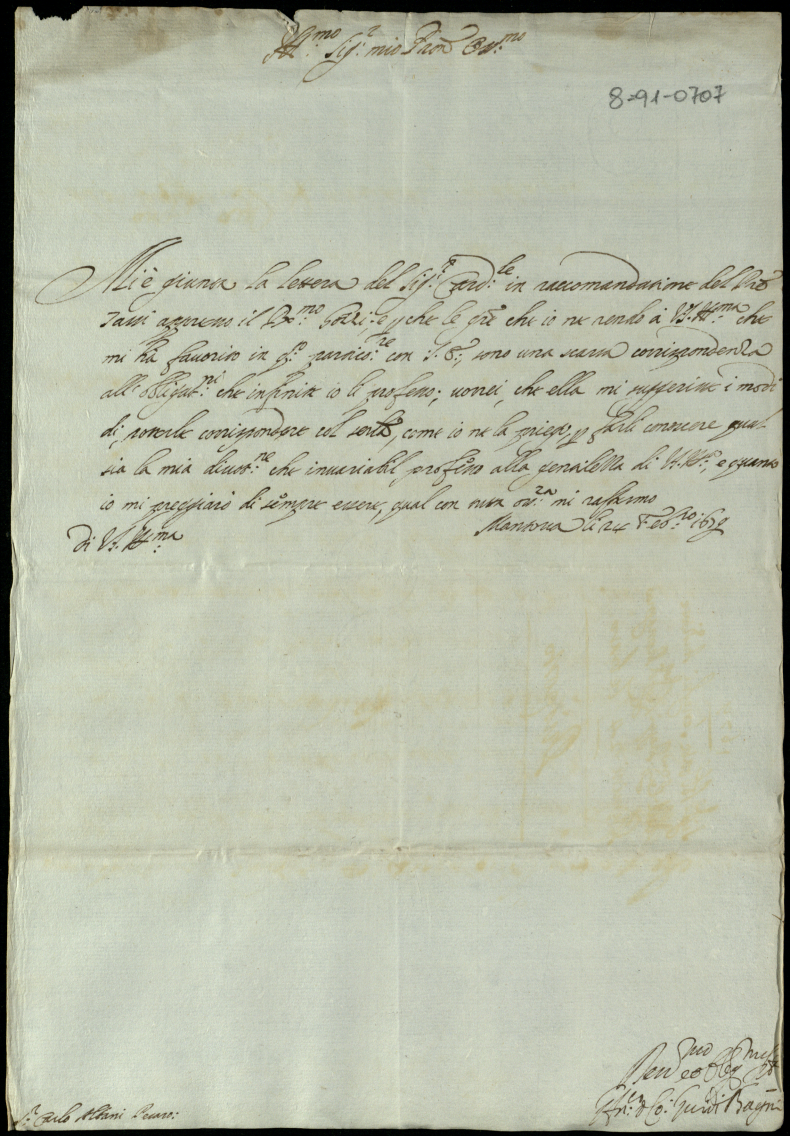 Ill:mo Sig:r mio Pron Oss:mo
8-91-0707
Mi è giunta la lettera del Sig:r Card:le in raccomandatione del Pre
Tassi appresso il P:mo e che le gre che io ne rendo à V.S. Ill:ma che
mi hà favorito in q:o partico:re con S. E:, sono una scarsa corrispondenza
all'obligat:ni che infinite io li professo; vorrei, che ella mi suggerisse i modi
di poterle corrispondere col servirla, come io ne la priego, p farli conoscere qual
sia la mia divot:ne che invariabil professo alla gentilezza di V.S. Ill:, e quanto
io mi preggiarò di sempre essere, qual con tutta oss:za mi raffermo
Mantova li 24 Feb:ro 1679
Di V.S. Ill:ma
Dev:mo et oblig:mo Ser:
Co: Guidi Bagni
S:r Carlo Albani Pesaro: